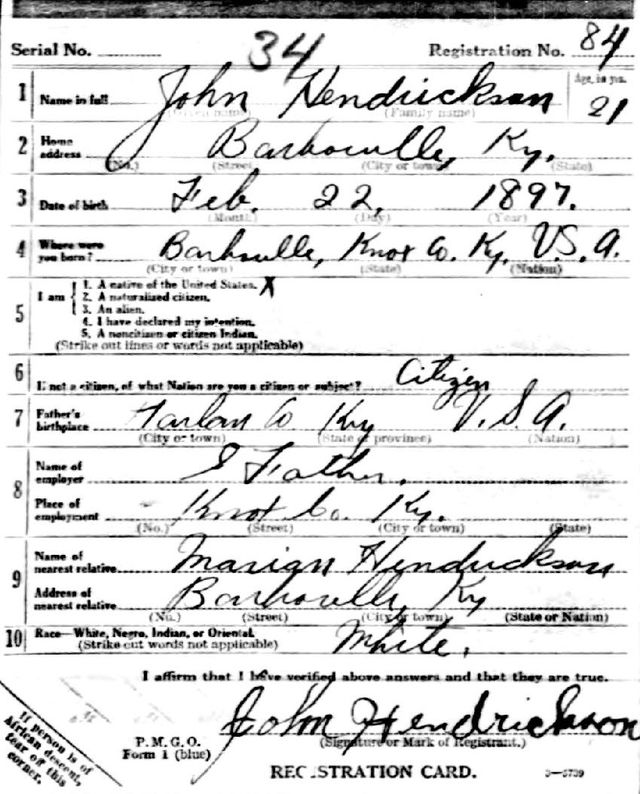 34
Serial No. Registration No. 84
1 Name in full John Hendrickson Age, in yrs. 21
(Given name) (Family name)
2 Home address Barbourville, Ky.
(No.) (Street) (City or town) (State)
3 Date of birth Feb. 22, 1897.
(Month) (Day) (Year)
4 Where were you born? Barbville, Knox Co. Ky, U.S.A.
(City or town) (State) (Nation)
5 I am
1. A native of the United States. X
2. A naturalized citizen.
3. An alien.
4. I have declared my intention.
5. A noncitizen or citizen Indian.
(Strike out lines or words not applicable)
6 If not a citizen, of what Nation are you a citizen or subject? Citizen
7 Father's birthplace Harlan Co Ky U.S.A.
(City or town) (State or province) (Nation)
8 Name of employer Father.
Place of employment Knox Co. Ky.
(No.) (Street) (City or town) (State)
9 Name of nearest relative Marian Hendrickson
Address of nearest relative Barbourville, Ky
(No.) (Street) (City or town) (State or Nation)
10 Race—White, Negro, Indian, or Oriental. White.
(Strike out words not applicable)
I affirm that I have verified above answers and that they are true.
John Hendrickson
(Signature or Mark of Registrant.)
P.M.G.O.
Form 1 (blue)
REGISTRATION CARD.
3—5739
If person is of
African descent,
tear off this
corner.